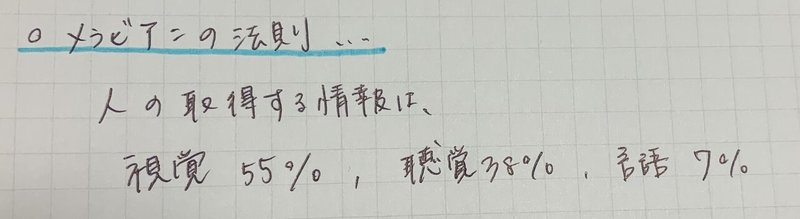 ○ メラビアンの法則 ...
人の取得する情報は、
視覚 55%, 聴覚38%, 言語 7%